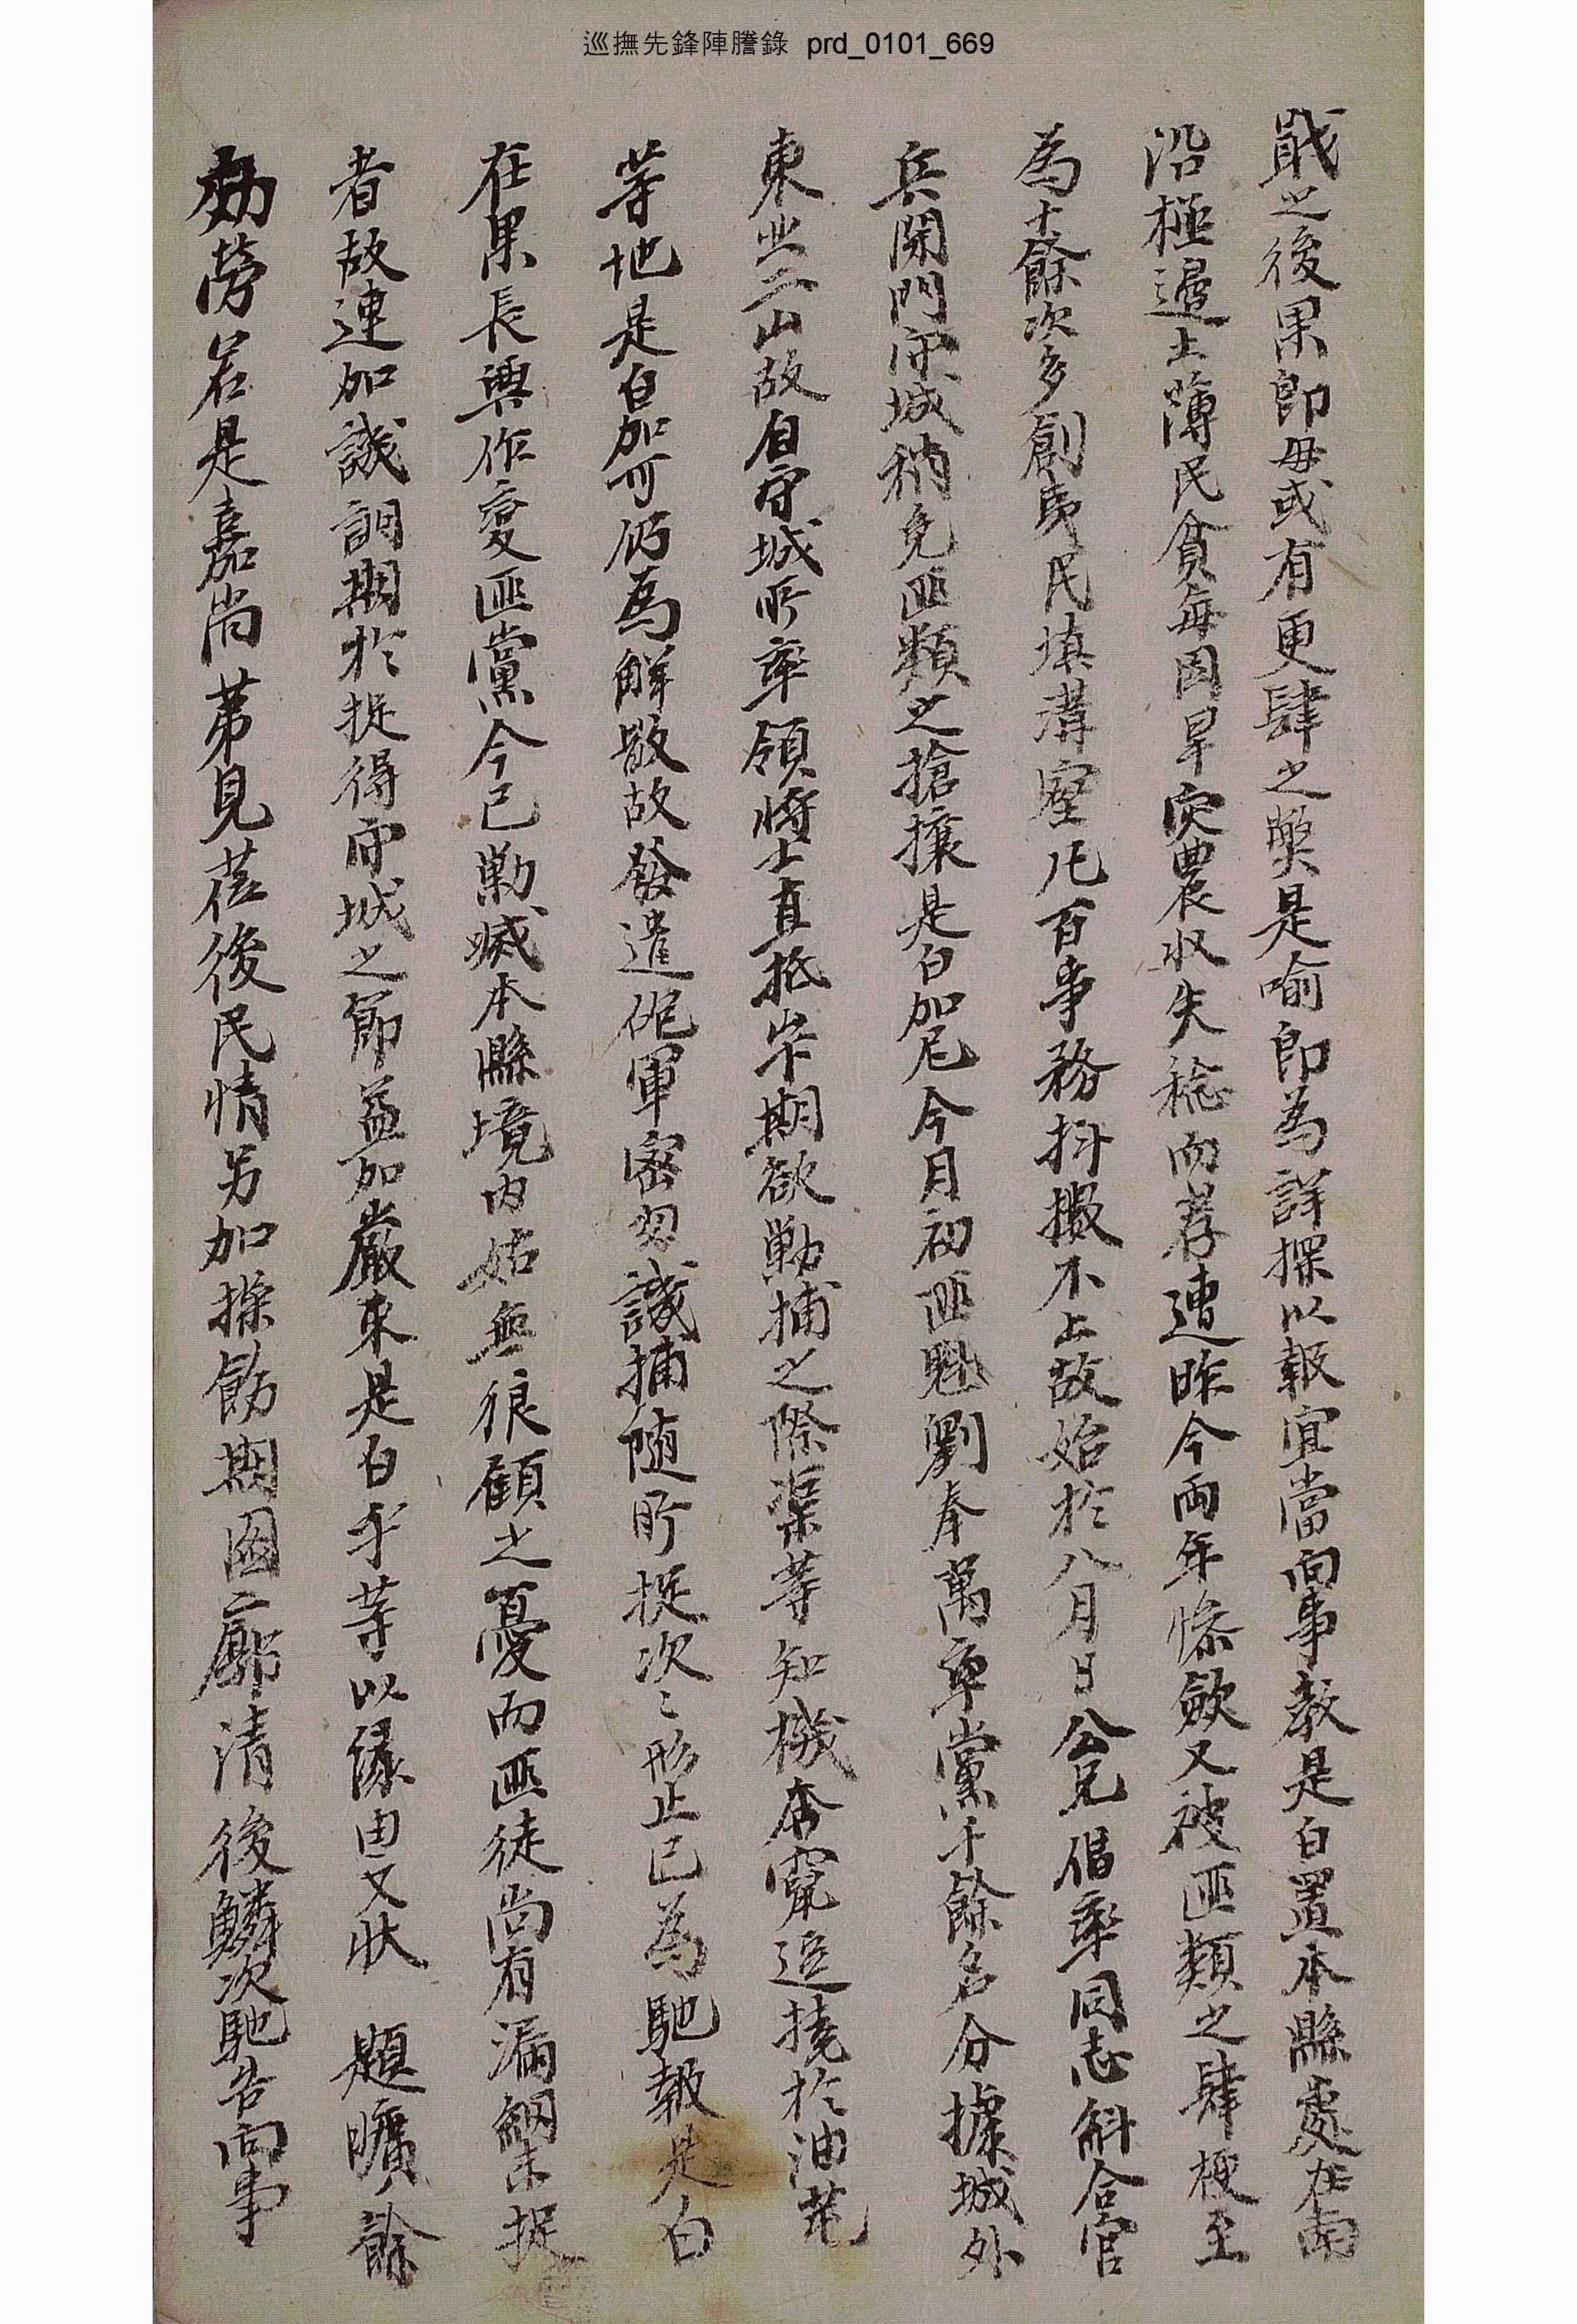 巡撫先鋒陣謄錄 prd_0101_669
戢之後果卽毋或有更肆之弊是喩卽爲詳探以報宜當向事敎是白置本縣處在南
沿極邊土薄民貧每因旱灾農収失稔而荐遭昨今兩年慘歉又被匪類之肆梗至
爲十餘次多創夷民填溝壑凡百事務抖擻不上故始於八月日公兄倡率同志糾合官
兵閉門守城稍免匪類之搶攘是白加尼今月初匪魁劉奉萬率黨千餘名分據城外
東北二山故自守城所率領將士直抵岸期欲勦捕之際渠等知機奔竄逗撓於油芚
等地是白加可仍爲解散故發遣砲軍密勿譏捕随所捉次〻形止已爲馳報是白
在果長興作变匪黨今已勦滅本縣境內姑無狼顧之憂而匪徒尚有漏網未捉
者故連加譏詗期於捉得守城之節益加嚴束是白乎等以緣由文狀 題曠餘
効勞若是嘉尚苐見莅後民情另加撡飭期圖廓清後鱗次馳告向事